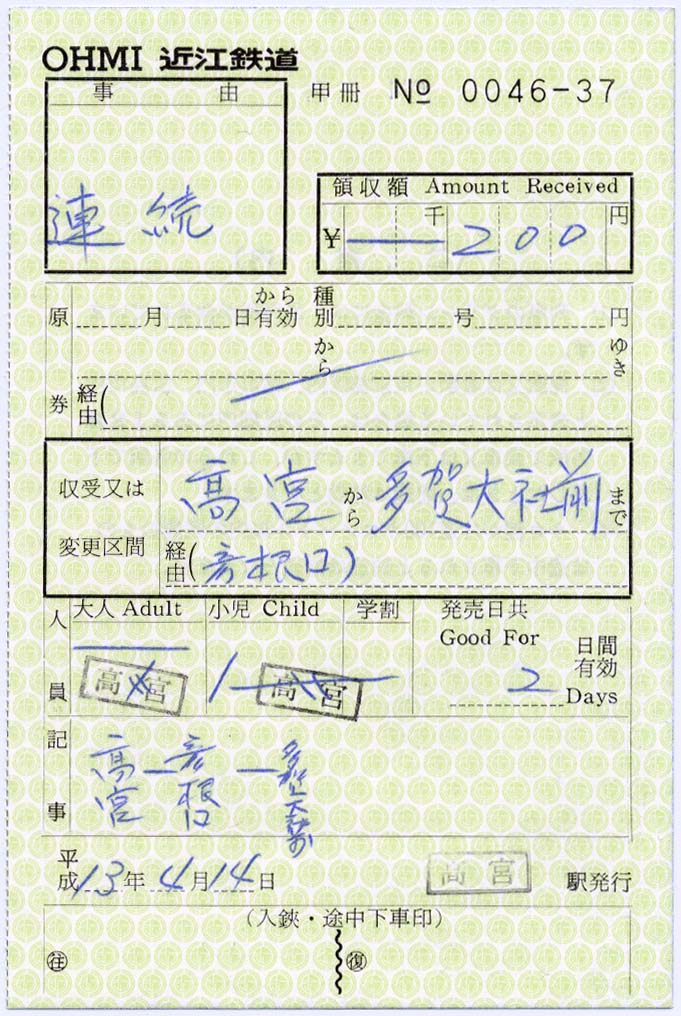 OHMI 近江鉄道
事 由
甲冊 № 0046-37
連続
領収額 Amount Received
千 円
¥ — 200
から 種
原 月 日有効 別 号 円
から ゆき
券 経由(
収受又は 高宮 から 多賀大社前 まで
変更区間 経由(彦根口)
人員 大人 Adult 小児 Child 学割 発売日共
Good For 日間
有効
高宮 1 高宮 2 Days
記事 高宮—彦根口—多賀大社前
平成13年4月14日 高宮 駅発行
(入鋏・途中下車印)
往 復